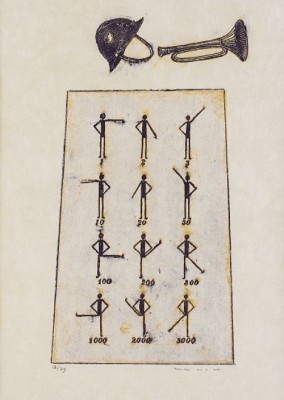 1 2 3
10 20 30
100 200 300
1000 2000 3000